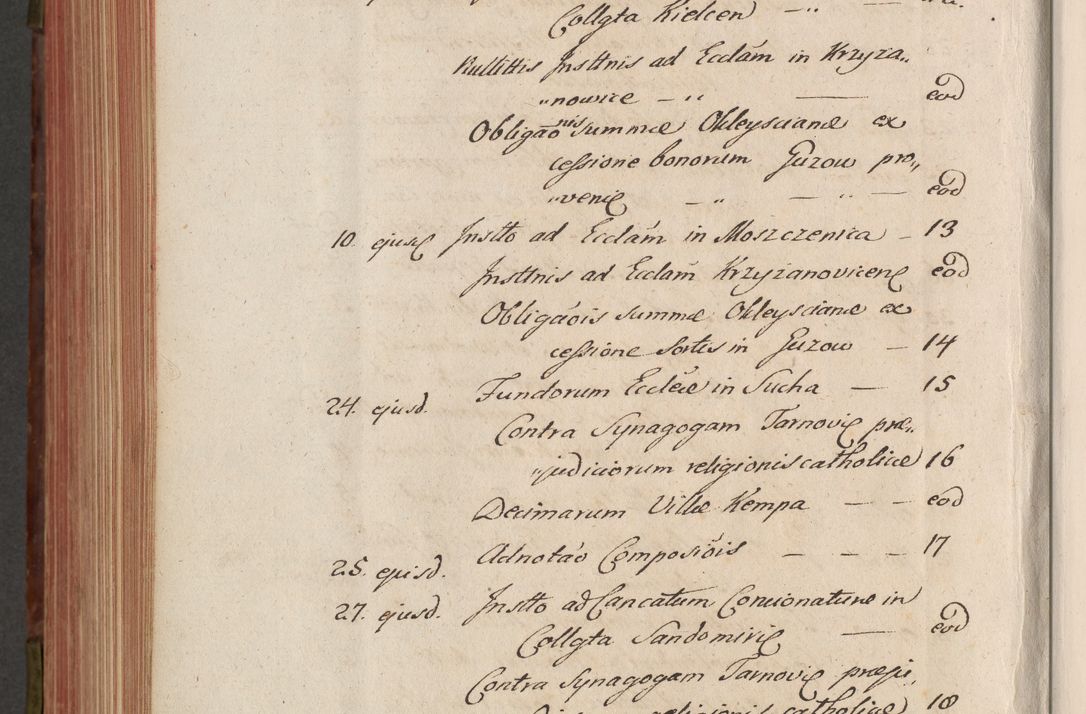 Collgta Kielcen — „ —
Nullittis Insttnis ad Ecclám in Krzyza„
„nowice — „ — eod
Obligaónis summæ Okleyscianæ ex
cessione bonorum Guzow pro„
„veniẽ — „ — „ — eod
10. ejusd Instto ad Ecclám in Moszczenica — 13
Insttnis ad Ecclam Krzyżanovicenẽ eod
Obligaóis summæ Okleyscianæ ex
cessione Sortis in Guzow — 14
24. ejusd. Fundorum Eccleæ in Sucha — 15
Contra Synagogam Tarnoviẽ præ„
„judiciorum religionis catholicæ 16
Decimarum Villæ Kempa — — eod
25. ejusd. Adnotáo Composiõis — — — 17
27. ejusd. Instto ad Cancatum Concionaturæ in
Collgta Sandomiriẽ — eod
Contra Synagogam Tarnoviẽ præju„
religionis catholicæ 18